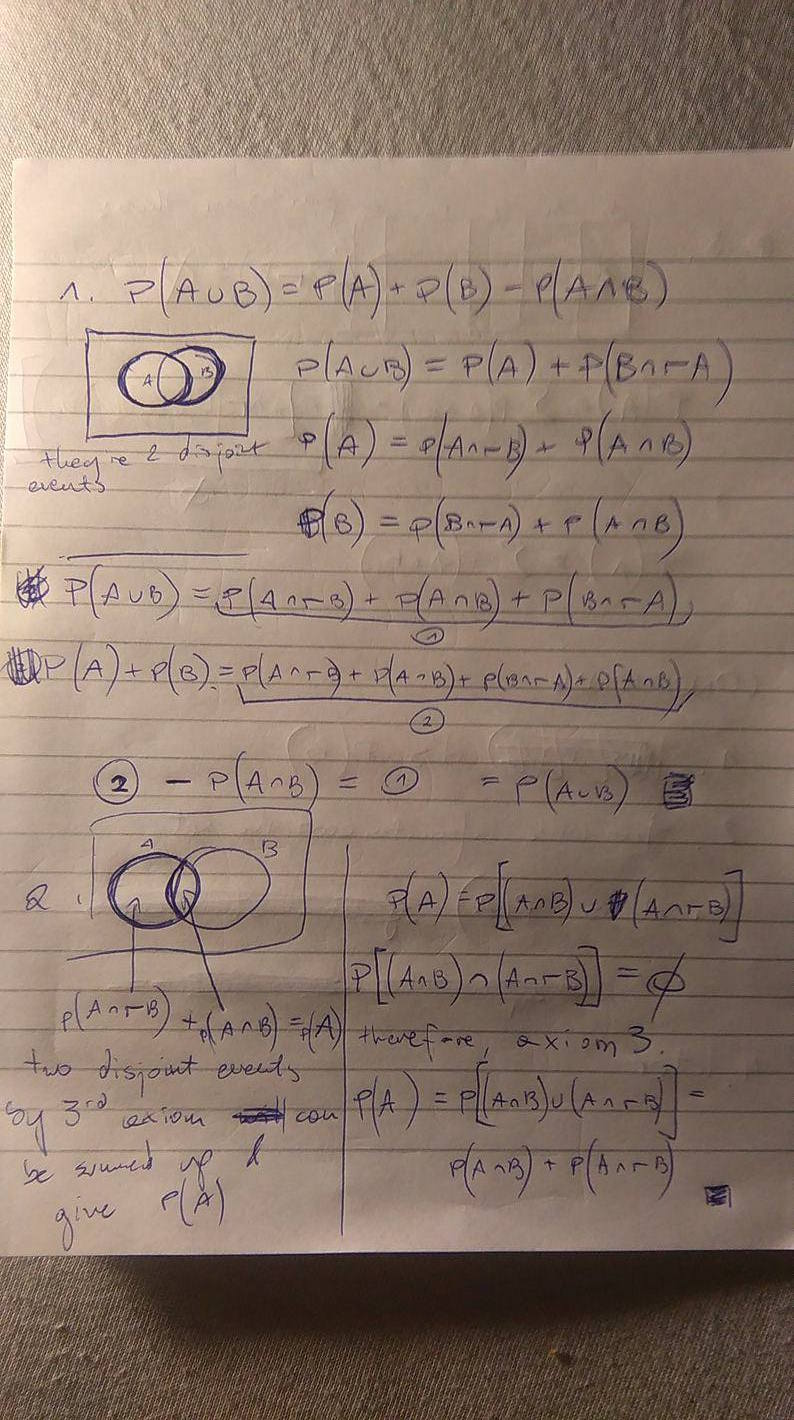 1. P(A∪B) = P(A) + P(B) - P(A∩B)
A B
P(A∪B) = P(A) + P(B∩¬A)
they're 2 disjoint
events
P(A) = P(A∩¬B) + P(A∩B)
P(B) = P(B∩¬A) + P(A∩B)
P(A∪B) = P(A∩¬B) + P(A∩B) + P(B∩¬A)
①
P(A) + P(B) = P(A∩¬B) + P(A∩B) + P(B∩¬A) + P(A∩B)
②
② - P(A∩B) = ① = P(A∪B)
2.
A B
P(A∩¬B) + P(A∩B) = P(A)
two disjoint events
by 3rd axiom can
be summed up &
give P(A)
P(A) = P[(A∩B) ∪ (A∩¬B)]
P[(A∩B) ∩ (A∩¬B)] = ∅
therefore, axiom 3.
P(A) = P[(A∩B) ∪ (A∩¬B)] =
P(A∩B) + P(A∩¬B)